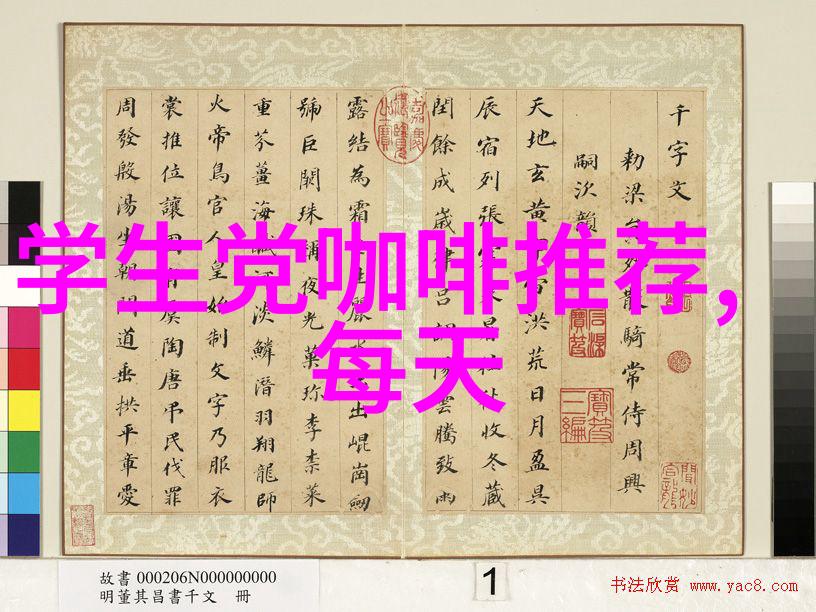 千字文
勑梁散騎常侍周興
嗣次韻
天地玄黃洪荒日月盈昃
辰宿列張收冬藏
閏餘成歲呂調陽雲騰致雨
露結為霜生麗水出崐崗劒
號巨闕珠稱夜光菓珍李柰菜
重芥薑海鹹河淡鱗潛羽翔龍師
火帝鳥官人皇始制文字乃服衣
裳推位讓國有虞陶唐弔民伐罪
周發殷湯坐朝問道垂拱平章愛
学生党咖啡推荐，
每天
故書 000206N000000000
明董其昌書千文 冊
1
书法欣赏 www.yac8.com